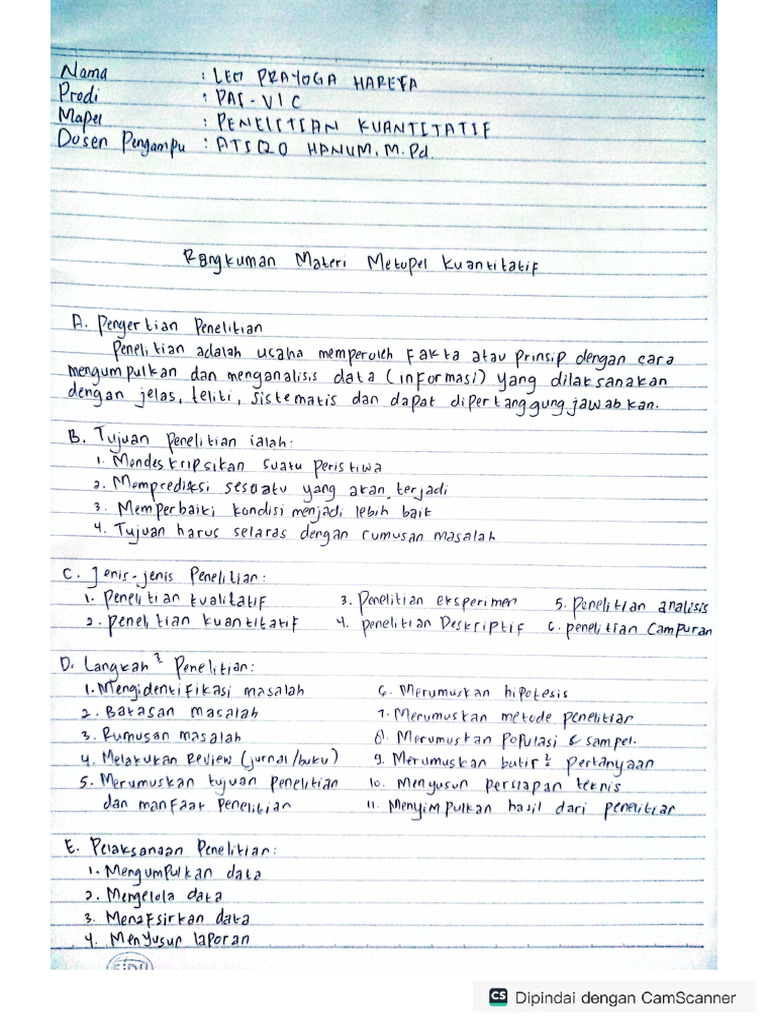 Nama : LEO PRAYOGA HAREFA
Prodi : PAI - VI C
Mapel : PENELITIAN KUANTITATIF
Dosen Pengampu : HANUM, M.Pd.
Rangkuman Materi Metopel Kuantitatif
A. Pengertian Penelitian
Penelitian adalah usaha memperoleh Fakta atau Prinsip dengan cara
mengumpulkan dan menganalisis data (informasi) yang dilaksanakan
dengan jelas, teliti, sistematis dan dapat dipertanggung jawabkan.
B. Tujuan Penelitian ialah:
1. Mendeskripsikan suatu peristiwa
2. Memprediksi sesuatu yang akan terjadi
3. Memperbaiki kondisi menjadi lebih baik
4. Tujuan harus selaras dengan rumusan masalah
C. Jenis-jenis Penelitian:
1. Penelitian kualitatif 3. Penelitian eksperimen 5. Penelitian analisis
2. Penelitian kuantitatif 4. Penelitian Deskriptif 6. penelitian Campuran
D. Langkah² Penelitian:
1. Mengidentifikasi masalah 6. Merumuskan hipotesis
2. Batasan masalah 7. Merumuskan metode penelitian
3. Rumusan masalah 8. Merumuskan Populasi & sampel.
4. Melakukan Review (jurnal/buku) 9. Merumuskan butir² pertanyaan
5. Merumuskan tujuan penelitian 10. Menyusun persiapan teknis
dan manfaat Penelitian 11. Menyimpulkan hasil dari penelitian
E. Pelaksanaan Penelitian:
1. Mengumpulkan data
2. Mengelola data
3. Menafsirkan data
4. Menyusun laporan
SIDU
CS Dipindai dengan CamScanner